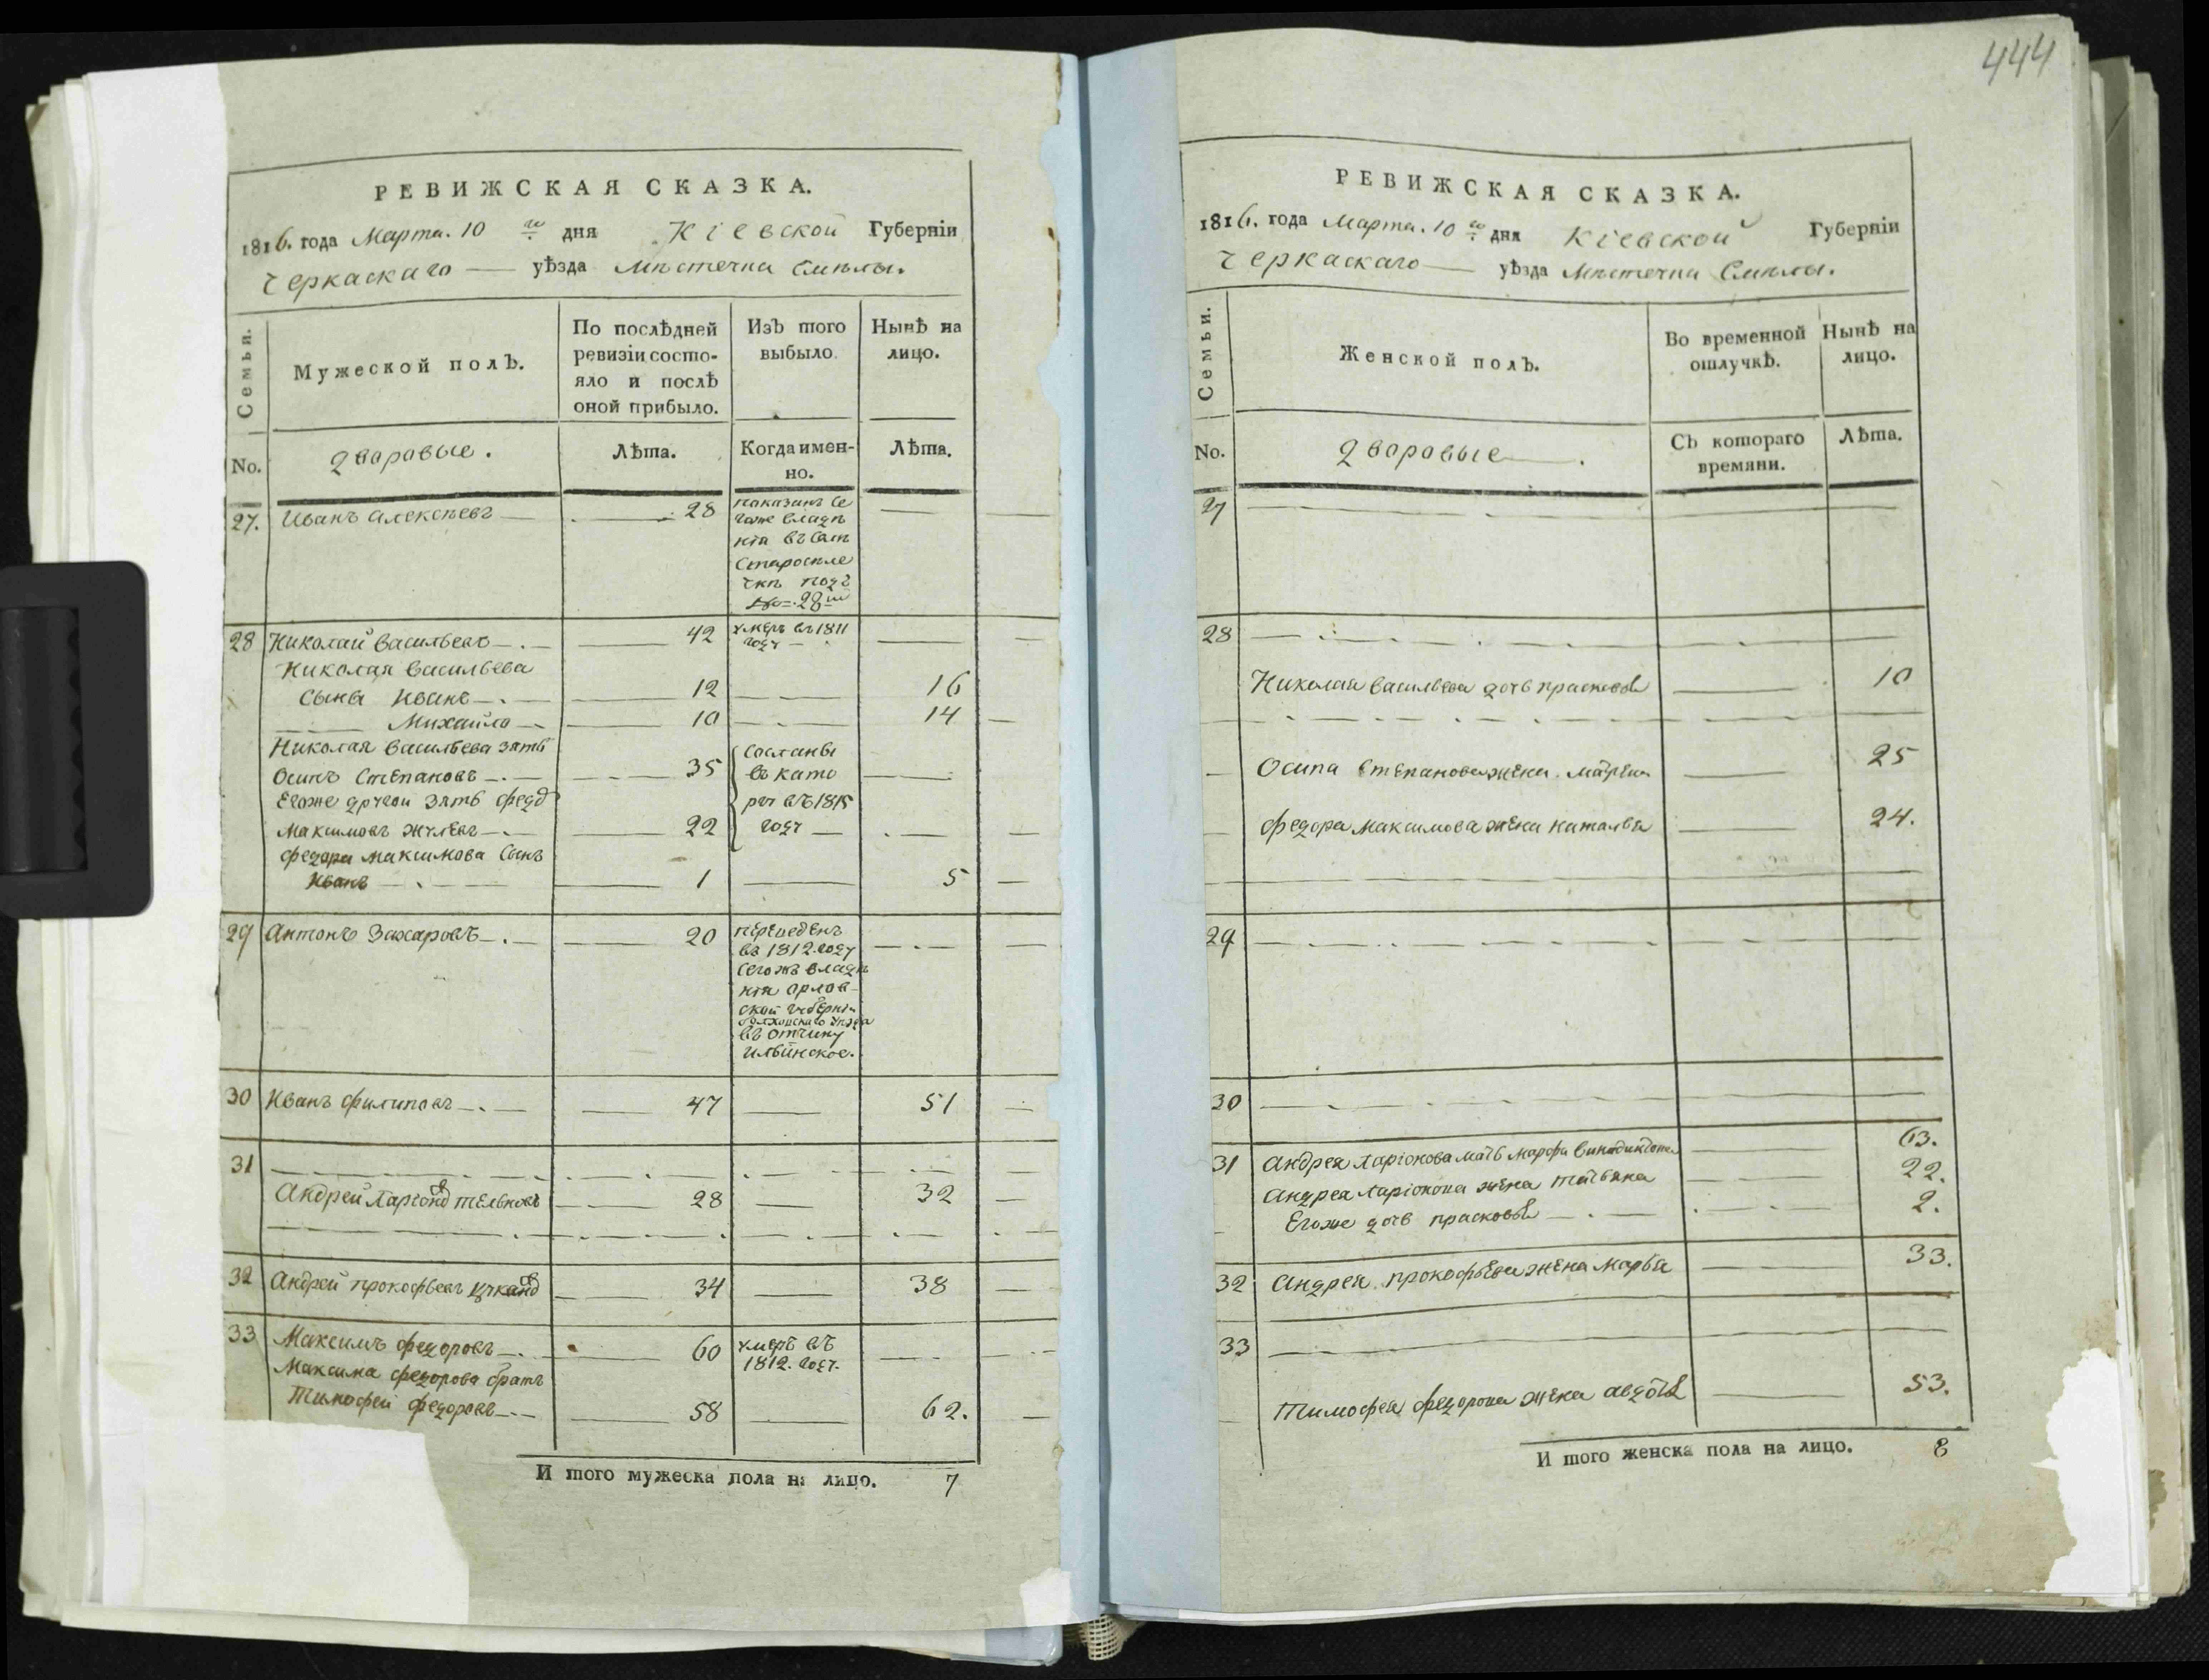 444
РЕВИЖСКАЯ СКАЗКА.
1816. года Марта. 10 го дня Кіевской Губерніи
Черкаскаго уѣзда Мѣстечка Смѣлы.
Семьи.
Мужеской полъ.
По послѣдней ревизіи состо-
яло и послѣ оной прибыло.
Изъ того выбыло.
Нынѣ на лицо.
No.
дворовые.
Лѣта.
Когда имен-
но.
Лѣта.
27. Иванъ Алексѣевъ 28
показанъ Се
гоже владѣ
нія въ Селѣ
Старосѣле
чкѣ подъ
№ 28 м
28 Николай Васильевъ 42 умеръ въ 1811
году
Николая Васильева
Сынъ Иванъ 12 16
Михайло 10 14
Николая Васильева зять
Осипъ Степановъ 35
Егоже другой зять Федо
Максимовъ 22
Сосланы
въ като
ргу въ 1815
году
Федора Максимова Сынъ
Иванъ 1 5
29 Антонъ Захаровъ 20
переведенъ
въ 1812. году
Сегожъ владѣ
нія Орлов-
ской Губерніи
Болховскаго уѣзда
въ отчину
Ильинское.
30 Иванъ Филиповъ 47 51
31
Андрей Ларіоновъ 28 32
32 Андрей Прокофьевъ 34 38
33 Максимъ Федоровъ 60 умеръ въ
1812. году.
Максима Федорова братъ
Тимофей Федоровъ 58 62.
И того мужеска пола на лицо. 7
РЕВИЖСКАЯ СКАЗКА.
1816. года Марта. 10 го дня Кіевской Губерніи
Черкаскаго уѣзда Мѣстечка Смѣлы.
Семьи.
Женской полъ.
Во временной
отлучкѣ.
Нынѣ на
лицо.
No.
дворовые.
Съ котораго
времяни.
Лѣта.
27
28
Николая Васильева дочь прасковья 10
Осипа Степанова жена 25
Федора Максимова жена Наталья 24.
29
30
31 Андрея Ларіонова мать Марфа 63.
Андрея Ларіонова жена Татьяна 22.
Егоже дочь прасковья 2.
32 Андрея прокофьева жена Марья 33.
33
Тимофея Федорова жена Авдотья 53.
И того женска пола на лицо. 8